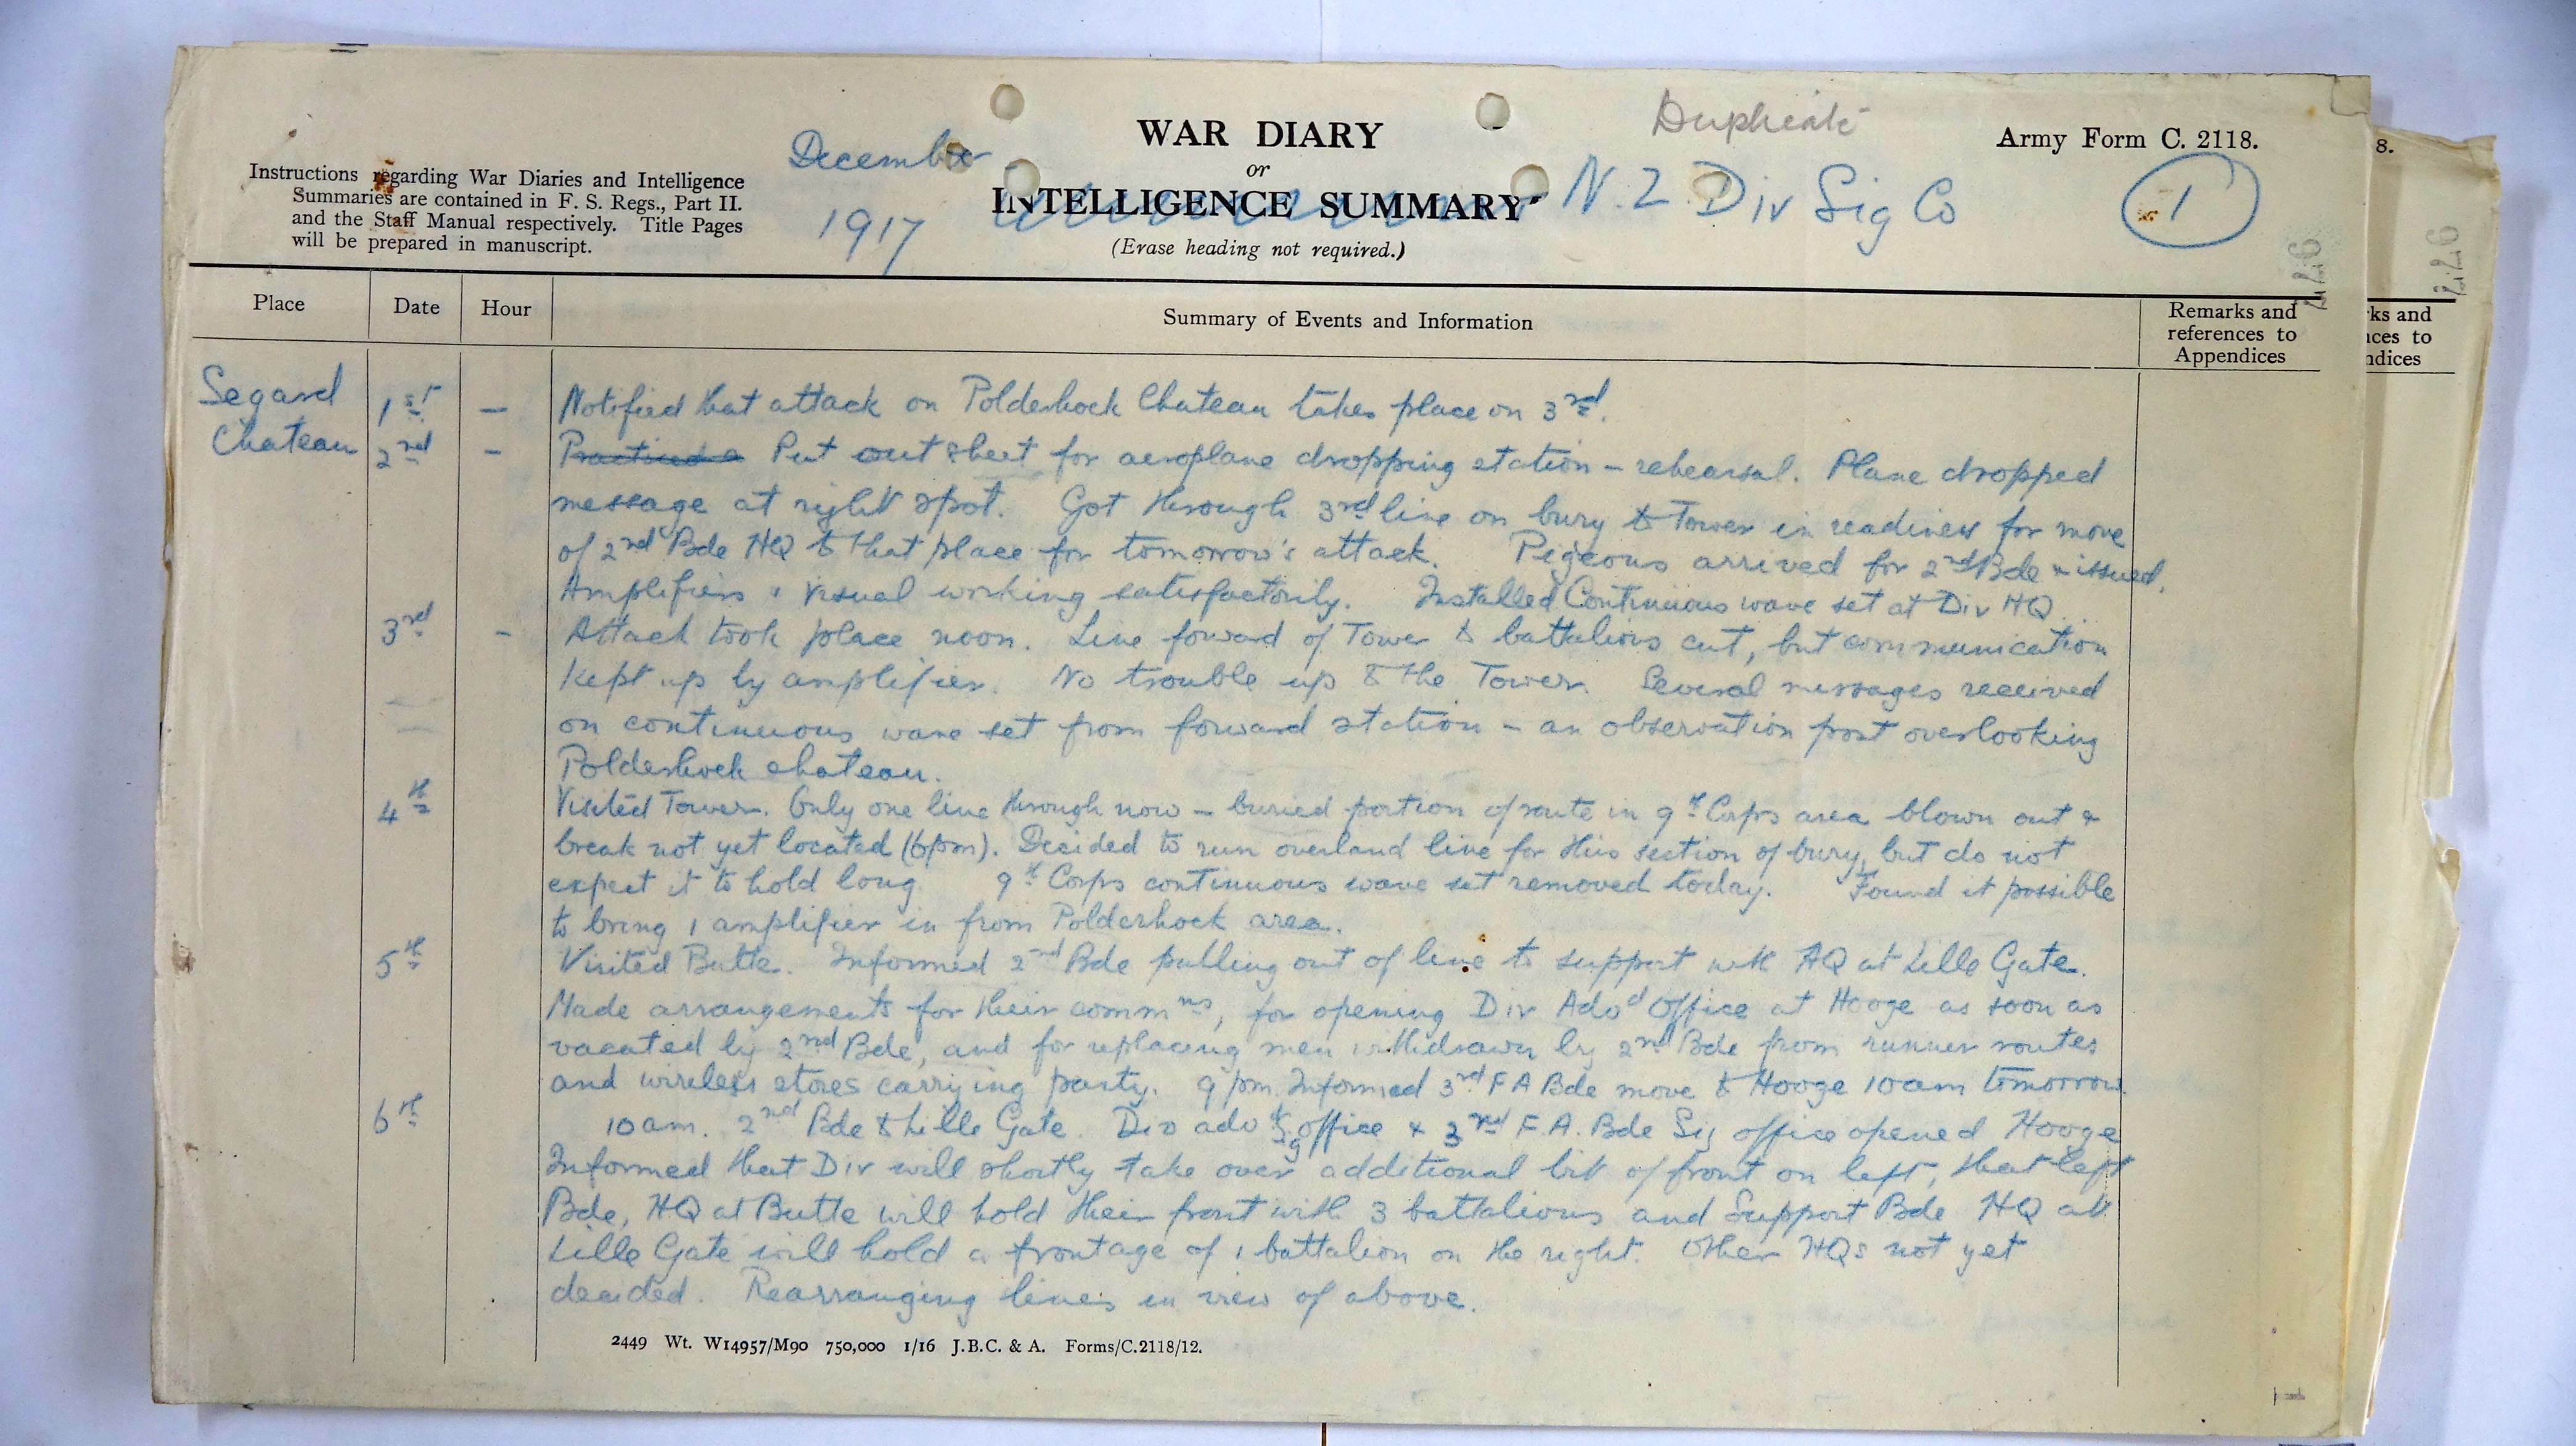 Duplicate
WAR DIARY
or
INTELLIGENCE SUMMARY
(Erase heading not required.)
Army Form C. 2118.
Instructions regarding War Diaries and Intelligence
Summaries are contained in F. S. Regs., Part II.
and the Staff Manual respectively. Title Pages
will be prepared in manuscript.
December
1917
N.Z. Div Sig Co
1
Place Date Hour Summary of Events and Information Remarks and references to Appendices
Segard Chateau
1st — Notified that attack on Polderhoek Chateau takes place on 3rd.
2nd — Put out sheet for aeroplane dropping station – rehearsal. Plane dropped
message at right spot. Got through 3rd line on bury to Tower in readiness for move
of 2nd Bde HQ to that place for tomorrow's attack. Pigeons arrived for 2nd Bde & issued.
Amplifiers & Visual working satisfactorily. Installed Continuous wave set at Div HQ.
3rd - Attack took place noon. Line forward of Tower to battalions cut, but communication
kept up by amplifier. No trouble up to the Tower. Several messages received
on continuous wave set from forward station – an observation post overlooking
Polderhoek chateau.
4th Visited Tower. Only one line through now – buried portion of route in 9th Corps area blown out &
break not yet located (6pm). Decided to run overland line for this section of bury, but do not
expect it to hold long. 9th Corps continuous wave set removed today. Found it possible
to bring 1 amplifier in from Polderhoek area.
5th Visited Butte. Informed 2nd Bde pulling out of line to support with HQ at Lille Gate.
Made arrangements for their commns, for opening Div Advd Office at Hooge as soon as
vacated by 2nd Bde, and for replacing men withdrawn by 2nd Bde from runner routes
and wireless stores carrying party. 9 pm. Informed 3rd F A Bde move to Hooge 10am tomorrow.
6th 10am. 2nd Bde to Lille Gate. Div adv Sig office & 3rd F.A. Bde Sig office opened Hooge
Informed that Div will shortly take over additional bit of front on left, that left
Bde, HQ at Butte will hold their front with 3 battalions and Support Bde HQ at
Lille Gate will hold a frontage of 1 battalion on the right. Other HQs not yet
decided. Rearranging lines in view of above.
2449 Wt. W14957/M90 750,000 1/16 J.B.C. & A. Forms/C.2118/12.
8.
rks and
nces to
ndices